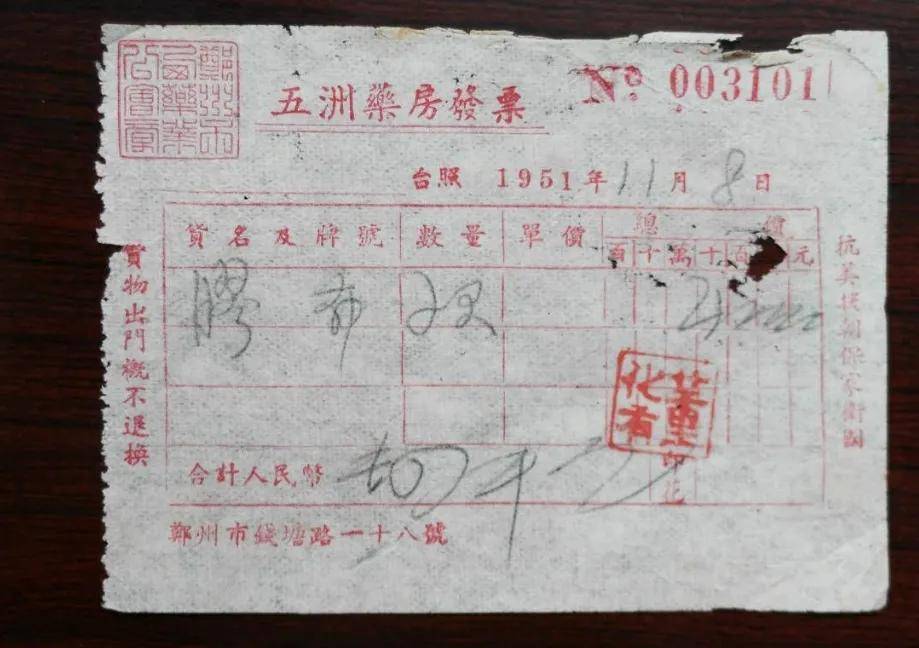 鄭州市西藥業公會章
五洲藥房發票
Nº 003101
台照 1951年11月8日
貨名及牌號 數量 單價 總價
百十萬十百元
膠布
合計人民幣
印花
鄭州市錢塘路一十八號
貨物出門概不退換
抗美援朝保家衛國